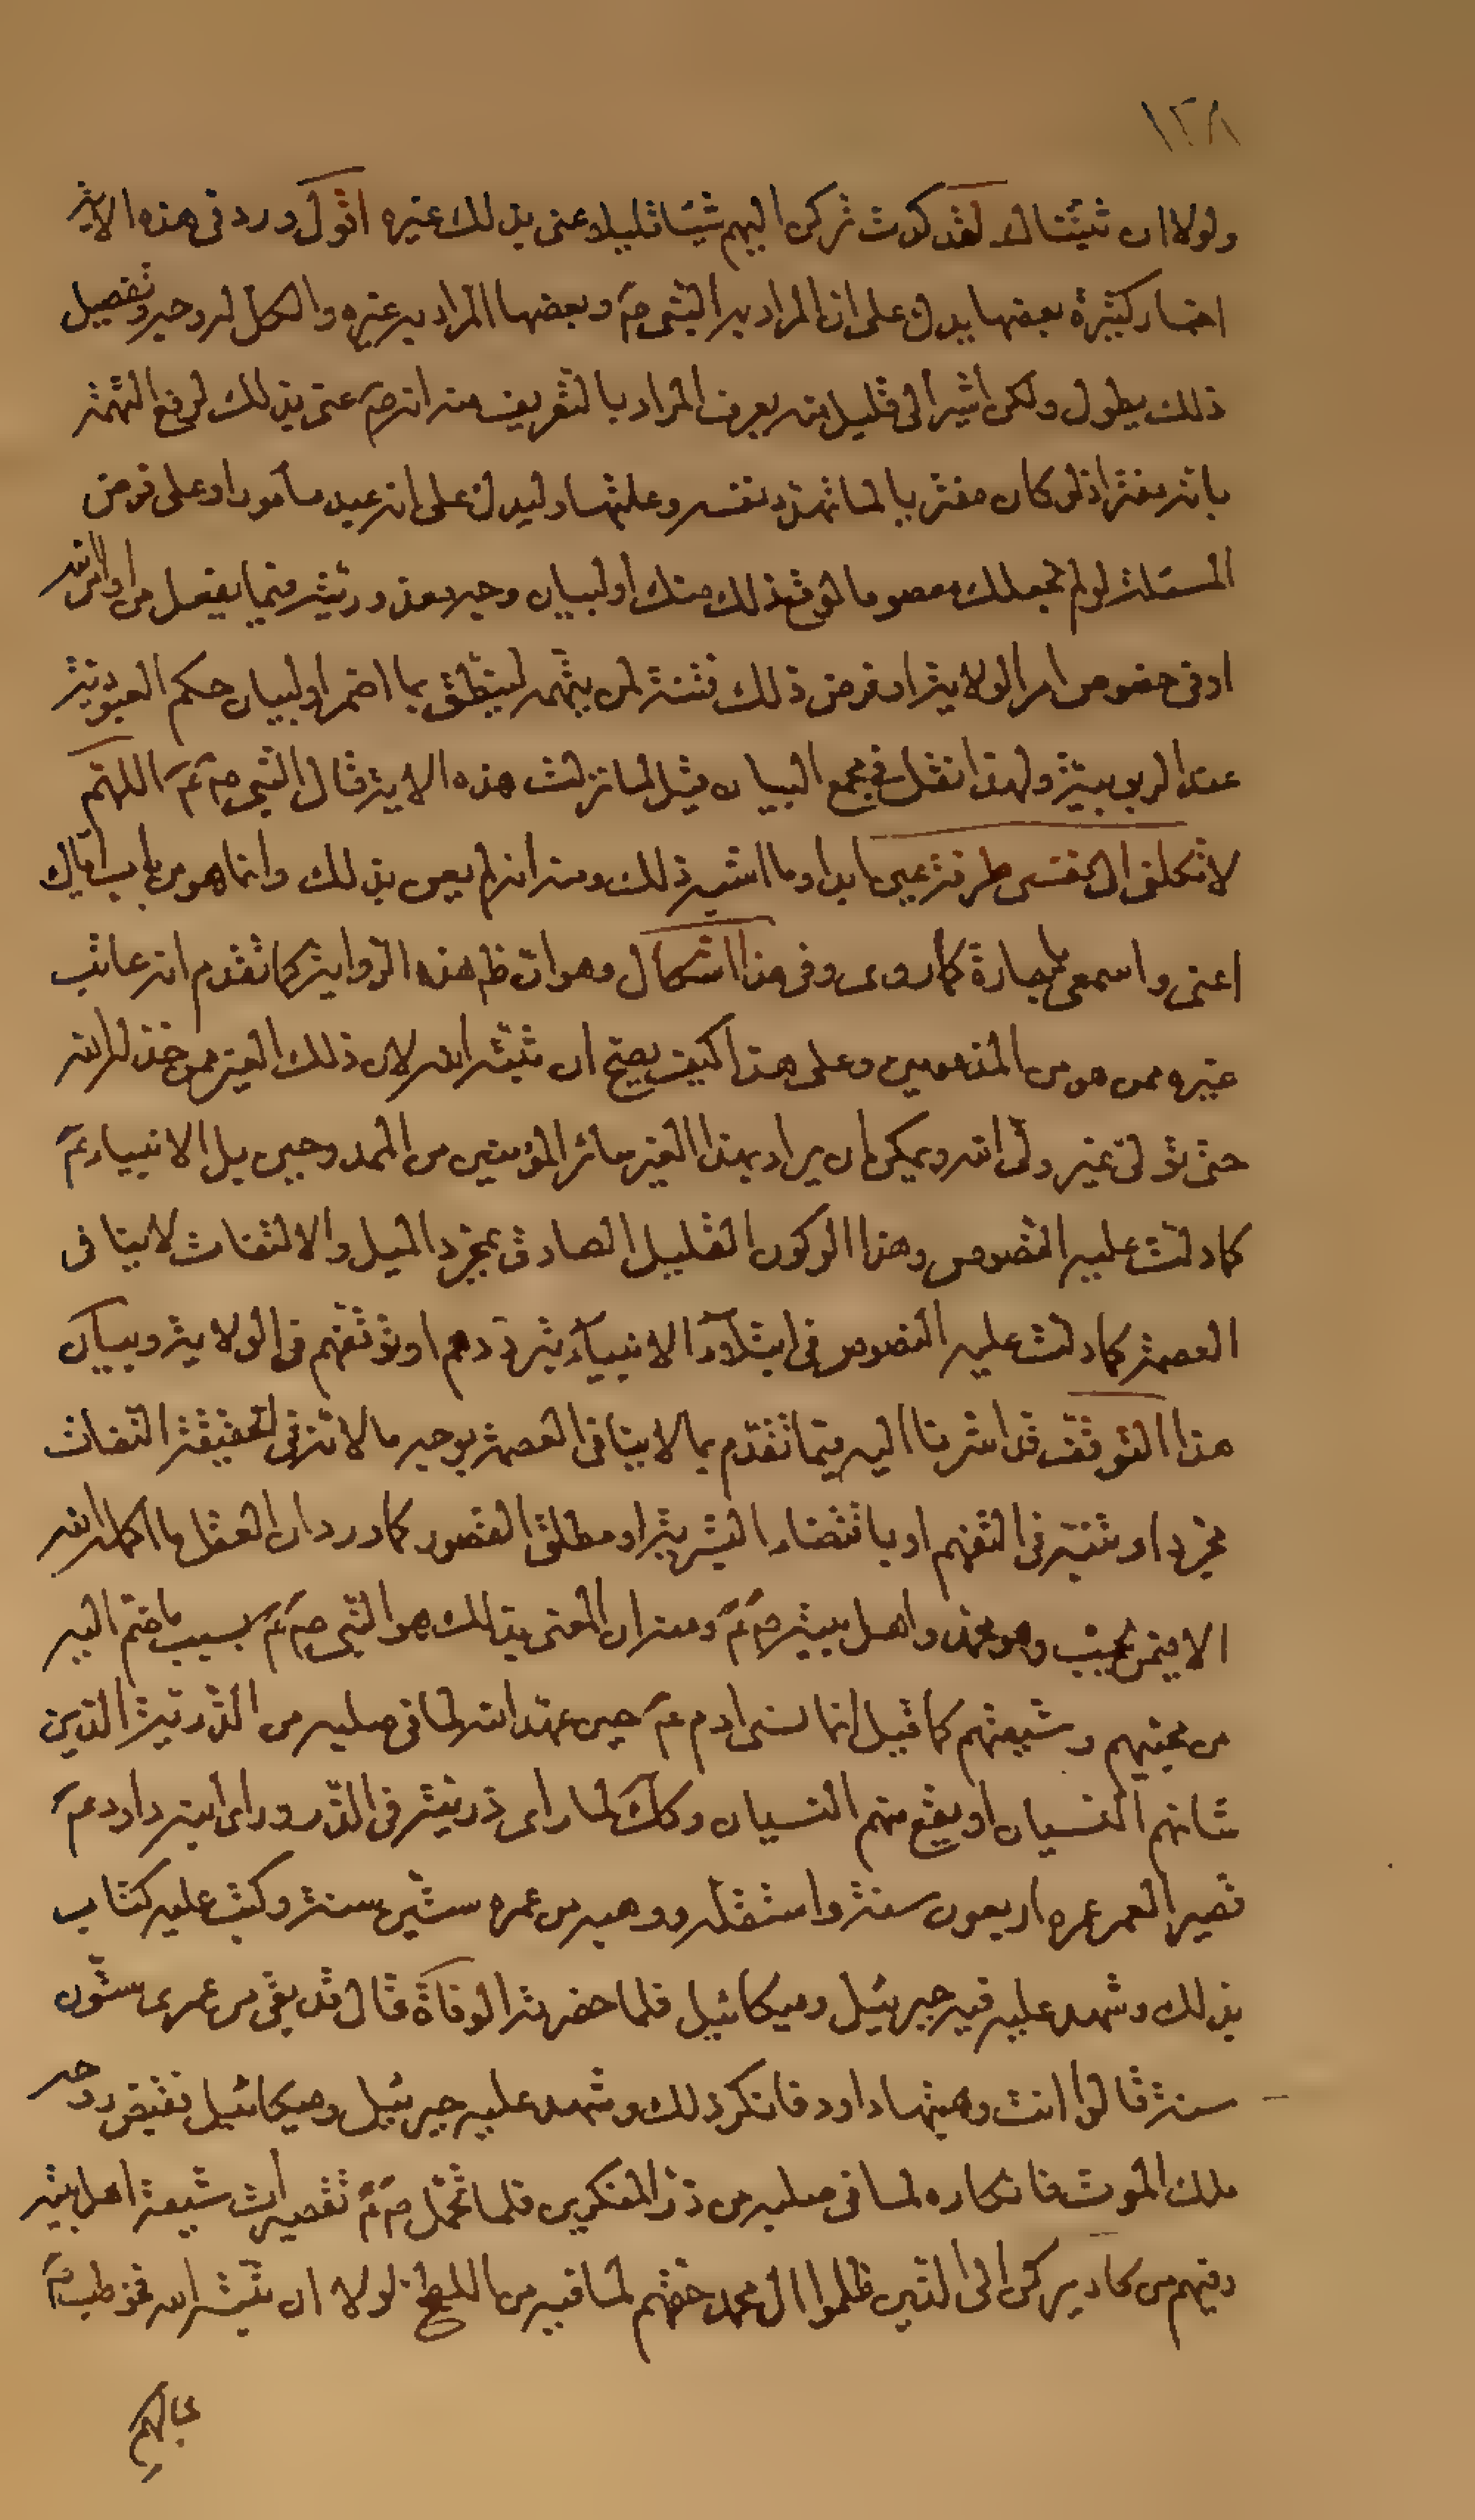 ١٢٨
ولولا ان ثبتناك لقد كدت تركن اليهم شيئا قليلا عنى بذلك غيره اقول ورد فى هذه الاية
اخبار كثيرة بعضها يدل على ان المراد به النبى ص وبعضها المراد به غيره والكل له وجه وتفصيل
ذلك يطول ولكن اشير الى قليل منه يعرف المراد بالتعريف منه انه ص عنى بذلك لرفع التهمة
بانه مفتر اذ لو كان مفتريا لما تهدد نفسه وعلتها وليدل على انه عبد مأمور او على فرض
المسئلة لو لم نجعلك معصوما لوقع ذلك منك او لبيان وجه معذوريته فيما يفعل من اوامر الله
او فى خصوص امر الولاية او فرض ذلك فتنة لمن يتهمه لينطق بما اضمر او لبيان حكم العبودية
عند الربوبية ولهذا نقل فى مجمع البيان قيل لما نزلت هذه الاية قال النبى ص ع اللهم
لا تكلنى الى نفسى طرفة عين ابدا وما اشبه ذلك ومنه انه لم يعن بذلك وانما هو من باب اياك
اعنى واسمعى يا جارة كما روى وفى هذا اشكال وهو ان ظ هذه الرواية كما تقدم انه عاتب
غيره ممن هو من المذمومين وعلى هذا كيف يصح ان ثبته الله لان ذلك الغير ممن خذله الله
حتى تولى غير ولى الله ويمكن ان يراد بهذا الغير سائر المؤمنين من الممدوحين بل الانبياء ع
كما دلت عليه النصوص وهذا الركون القليل الصادق بمجرد الميل والالتفات لا ينافى
العصمة كما دلت عليه النصوص فى ابتلاء الانبياء بترددهم او توقفهم فى الولاية وبيان
هذا التوقف قد اشرنا اليه فيما تقدم بما لا ينافى العصمة بوجه ما لانه فى الحقيقة التفات
مجرد او تثبت فى التفهم او باقتضاء البشرية او مطلق القصور كما ورد ان العقل ما اكمله الله
الا فيمن يحب وهو محمد واهل بيته ص ع ومنه ان المعنى بذلك هو النبى ص ع بسبب ما ضم اليه
من محبيهم وشيعتهم كما قيل انما نسى ادم ع حين عهد الله لما فى صلبه من الذرية الذين
شانهم النسيان او يقع منهم النسيان وكك لما راى ذريته فى الذر وراى ابنه داود ع
قصير العمر عمره اربعون سنة واستقله ووهبه من عمره ستين سنة وكتب عليه كتاب
بذلك وشهد عليه فيه جبرئيل وميكائيل فلما حضرته الوفاة قال قد بقى من عمرى ستون
سنة قالوا انت وهبتها داود فانكر ذلك وشهد عليه جبرئيل وميكائيل فقبض روحه
ملك الموت فانكاره لما فى صلبه من ذر المنكرين فلما تحمل ص ع تقصيرات شيعة اهل بيته
وفيهم من كاد يركن الى الذين ظلموا ال محمد حقهم لما فيه من اللطخ لولا ان يثبته الله خوطب ص